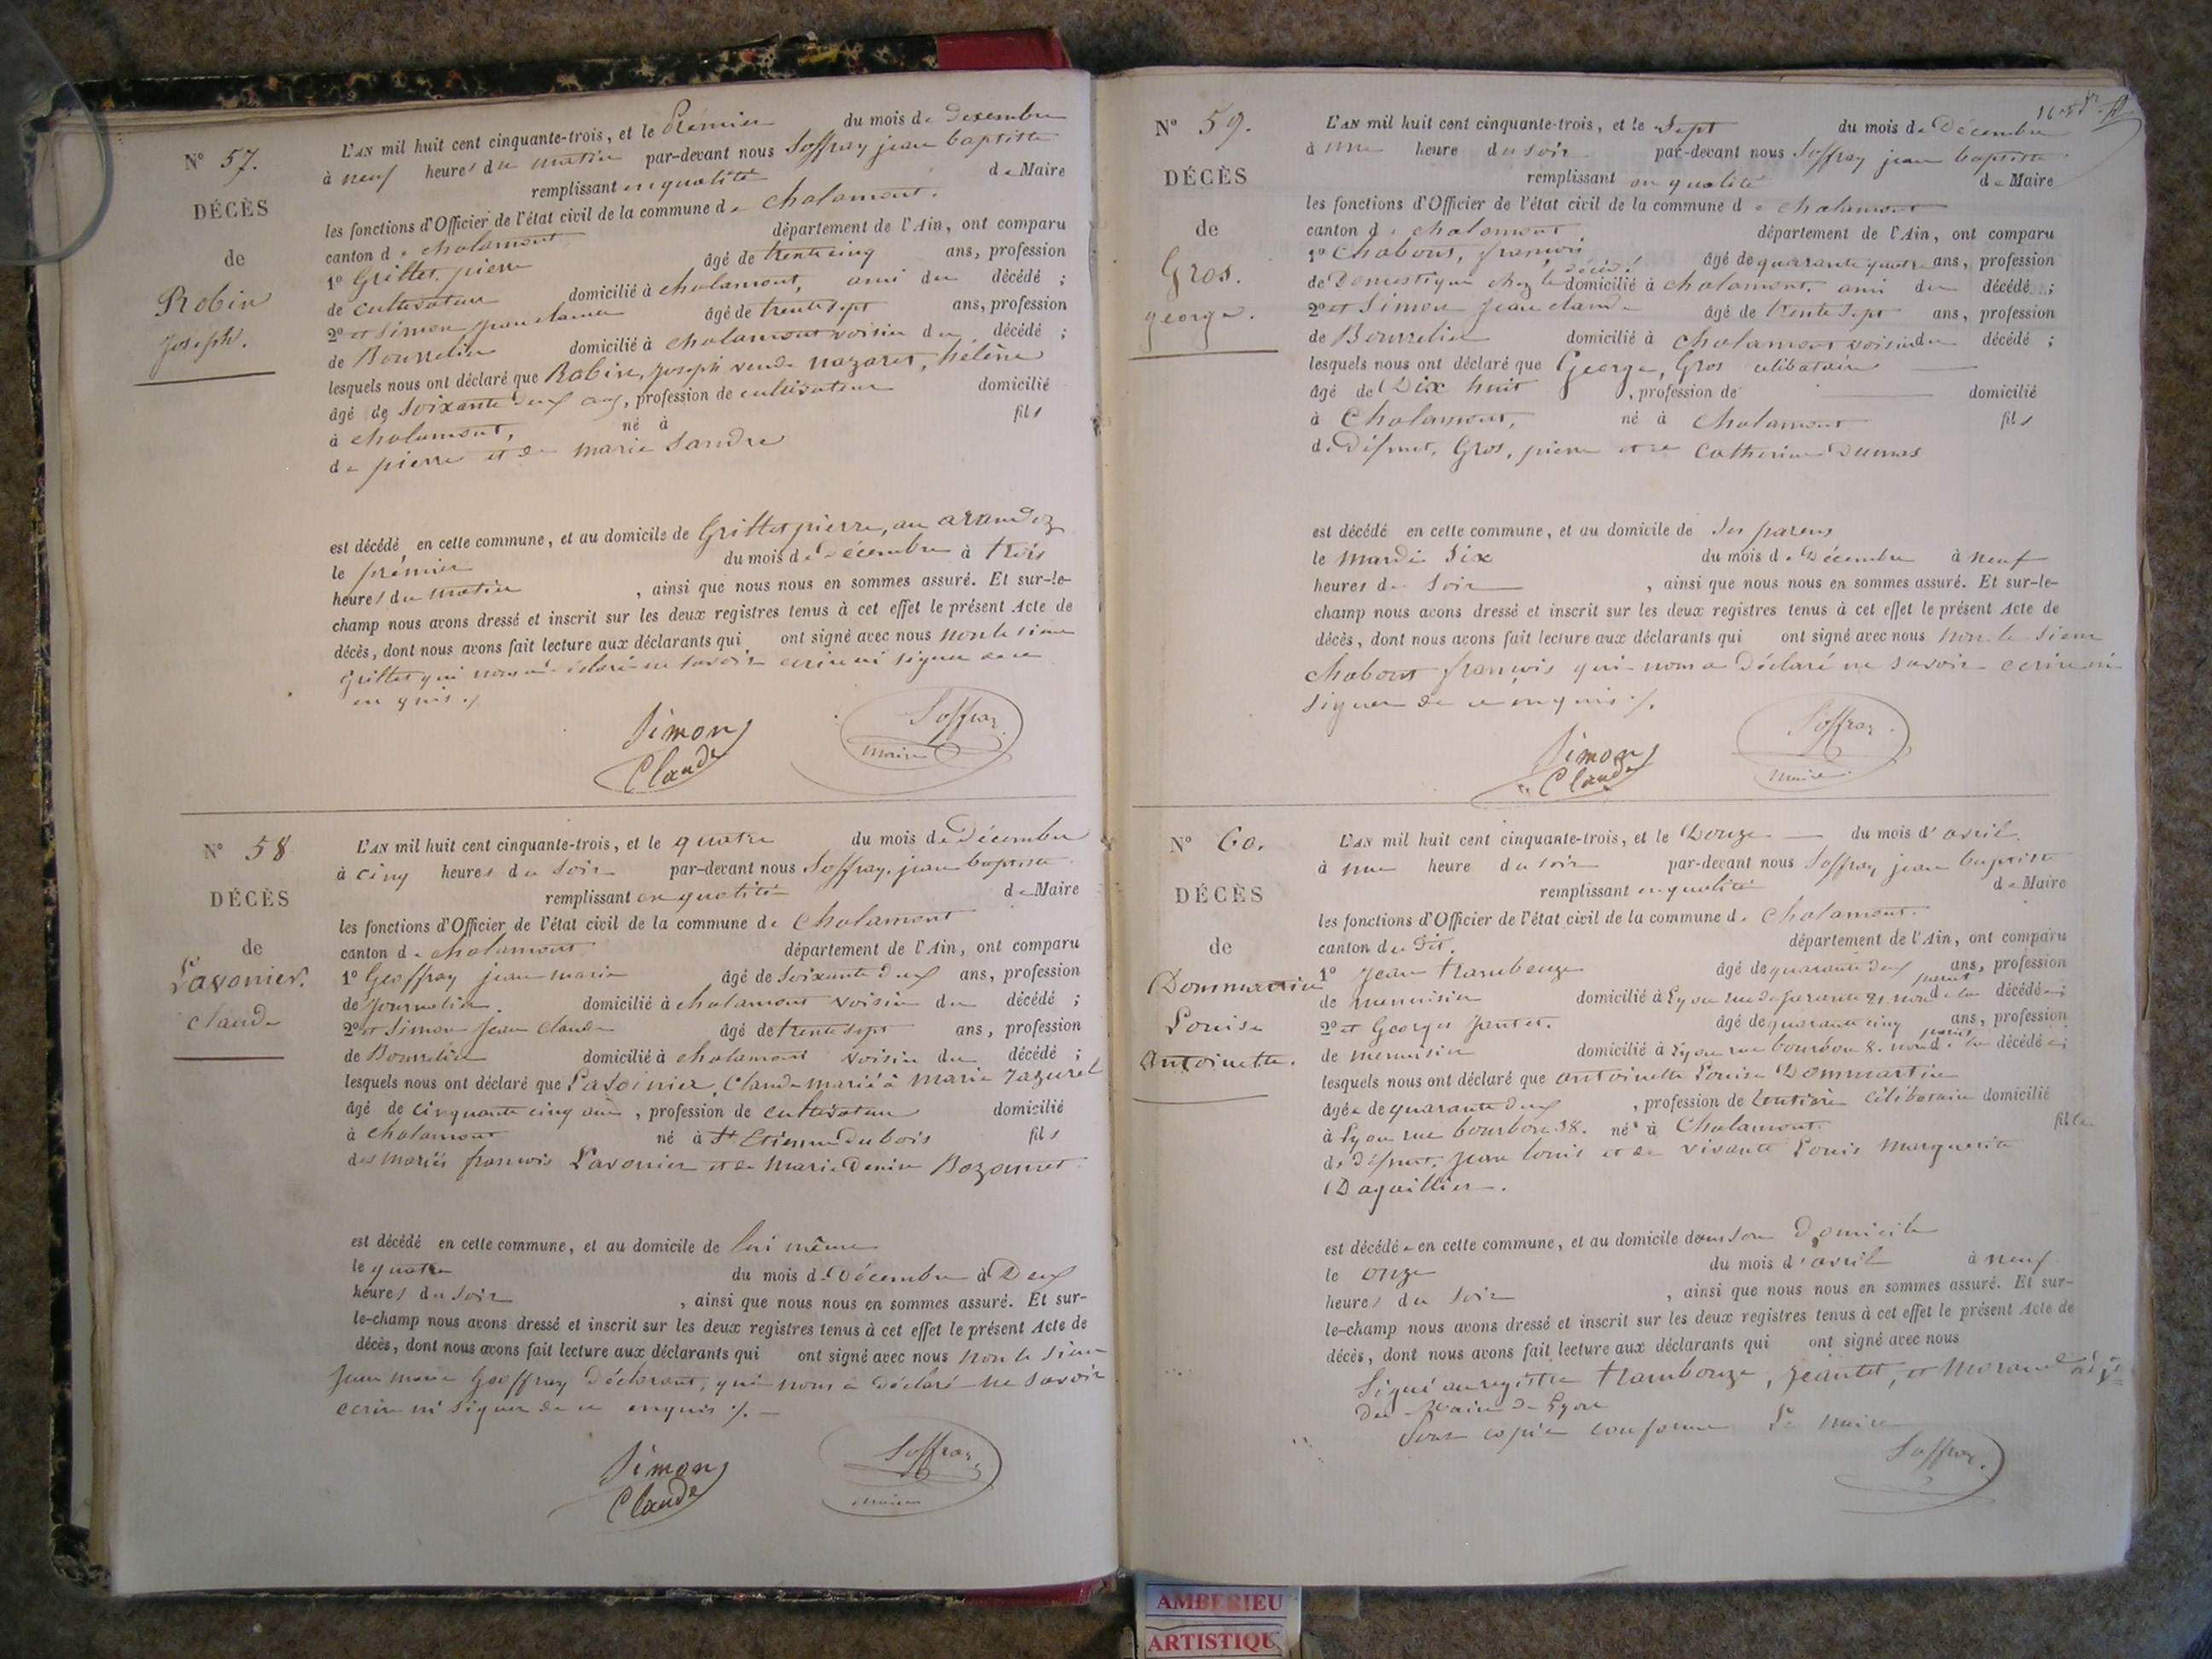 N° 57.
DÉCÈS
de
Robin
Joseph.
L'AN mil huit cent cinquante-trois, et le Prémier du mois de Dexembre
à neuf heures du matin par-devant nous Soffray jean baptiste
remplissant en qualité de Maire
les fonctions d'Officier de l'état civil de la commune de chalamont.
canton de chalamont département de l'Ain, ont comparu
1° Grillet, pierre âgé de trente cinq ans, profession
de cultivateur domicilié à chalamont, ami du décédé ;
2° et Simon jean claude âgé de trente sept ans, profession
de Bourrelier domicilié à chalamont voisin du décédé ;
lesquels nous ont déclaré que Robin, joseph veuf de nazaret, hélène
âgé de Soixante deux ans, profession de cultivateur domicilié
à chalamont, né à fils
de pierre et de marie Sandre
est décédé en cette commune, et au domicile de Grillet pierre, au
le prémier du mois de Décembre à trois
heures du matin , ainsi que nous nous en sommes assuré. Et sur-le-
champ nous avons dressé et inscrit sur les deux registres tenus à cet effet le présent Acte de
décès, dont nous avons fait lecture aux déclarants qui ont signé avec nous non le sieur
Grillet qui nous a déclaré ne savoir ecrire ni signer de ce
enquis ./.
Simon Soffray
Claude maire
N° 58
DÉCÈS
de
Lavonier.
claude
L'AN mil huit cent cinquante-trois, et le quatre du mois de Décembre
à cinq heures du Soir par-devant nous Soffray, jean baptiste
remplissant en qualité de Maire
les fonctions d'Officier de l'état civil de la commune de Chalamont
canton de chalamont département de l'Ain, ont comparu
1° Geoffray jean marie âgé de Soixante deux ans, profession
de journalier. domicilié à chalamont voisin du décédé ;
2° et Simon Jean Claude âgé de trente sept ans, profession
de Bourrelier domicilié à chalamont voisin du décédé ;
lesquels nous ont déclaré que Lavoinier, Claude marié à marie
âgé de cinquante cinq ans , profession de cultivateur domicilié
à chalamont né à St Etienne Dubois fils
des mariés françois Lavonier et de Marie Denise Bozonnet
est décédé en cette commune, et au domicile de lui même
le quatre du mois de Décembre à Deux
heures du Soir , ainsi que nous nous en sommes assuré. Et sur-
le-champ nous avons dressé et inscrit sur les deux registres tenus à cet effet le présent Acte de
décès, dont nous avons fait lecture aux déclarants qui ont signé avec nous non le Sieur
Jean marie Geoffray Déclarant, qui nous a déclaré ne savoir
ecrire ni signer de ce enquis ./.
Simon Soffray
Claude maire
N° 59.
DÉCÈS
de
Gros.
george.
L'AN mil huit cent cinquante-trois, et le Sept du mois de Décembre
à une heure du soir par-devant nous Soffray jean baptiste
remplissant en qualité de Maire
les fonctions d'Officier de l'état civil de la commune de chalamont
canton de chalamont. département de l'Ain, ont comparu
1° Chabout, françois âgé de quarante quatre ans, profession
de Domestique chez le décédé domicilié à chalamont. ami du décédé ;
2° et Simon Jean claude âgé de trente Sept ans, profession
de Bourrelier domicilié à chalamont voisin du décédé ;
lesquels nous ont déclaré que George, Gros célibataire
âgé de Dix huit , profession de domicilié
à Chalamont, né à Chalamont fils
de Défunt, Gros, pierre et de Catherine Dumas
est décédé en cette commune, et au domicile de Ses parens
le Mardi Six du mois de Décembre à neuf
heures du Soir , ainsi que nous nous en sommes assuré. Et sur-le-
champ nous avons dressé et inscrit sur les deux registres tenus à cet effet le présent Acte de
décès, dont nous avons fait lecture aux déclarants qui ont signé avec nous non le Sieur
Chabout françois qui nous a Déclaré ne savoir ecrire ni
Signer de ce enquis ./.
Simon Soffray
Claude maire
N° 60.
DÉCÈS
de
Dommartin
Louise
Antoinette.
L'AN mil huit cent cinquante-trois, et le Douze du mois d'avril
à une heure du soir par-devant nous Soffray jean baptiste
remplissant en qualité de Maire
les fonctions d'Officier de l'état civil de la commune de Chalamont.
canton du dit. département de l'Ain, ont comparu
1° Jean trambouze âgé de quarante deux ans, profession
de menuisier domicilié à Lyon rue 21 non parent de la décédée ;
2° et Georges Jantet. âgé de quarante cinq ans, profession
de menuisier domicilié à Lyon rue bourbon 8. non parent de la décédée ;
lesquels nous ont déclaré que antoinette Louise Dommartin
âgée de quarante deux , profession de célibataire domicilié
à Lyon rue bourbon 38. né à Chalamont. fille
de Défunt, Jean Louis et de vivante Louis Marguerite
Dagaillier.
est décédée en cette commune, et au domicile dans son Domicile
le onze du mois d'avril à neuf
heures du Soir , ainsi que nous nous en sommes assuré. Et sur-
le-champ nous avons dressé et inscrit sur les deux registres tenus à cet effet le présent Acte de
décès, dont nous avons fait lecture aux déclarants qui ont signé avec nous
Signé au registre trambouze, jeantet, et Morand
Du Maire de Lyon
Pour copie conforme Le maire
Soffray.
AMBERIEU
ARTISTIQU